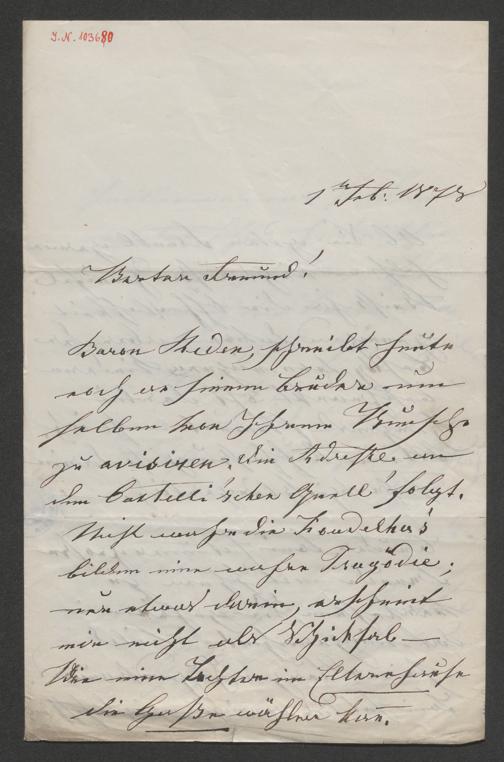 I.N. 103680
1ten Feb. 1878
Werter Freund!
Baron Steden schreibt heute
noch an seinen Bruder um
selben von Ihrem Wunsche
zu avisiren. Die Adresse an
den Castelli'schen Quell' folgt.
Nicht wahr die Koudelka's
bilden eine wahre Tragödie;
nur etwas darin, erscheint
mir nicht als Schicksal —
Wie eine Tochter im Elternhause
die Gasse wählen kann.